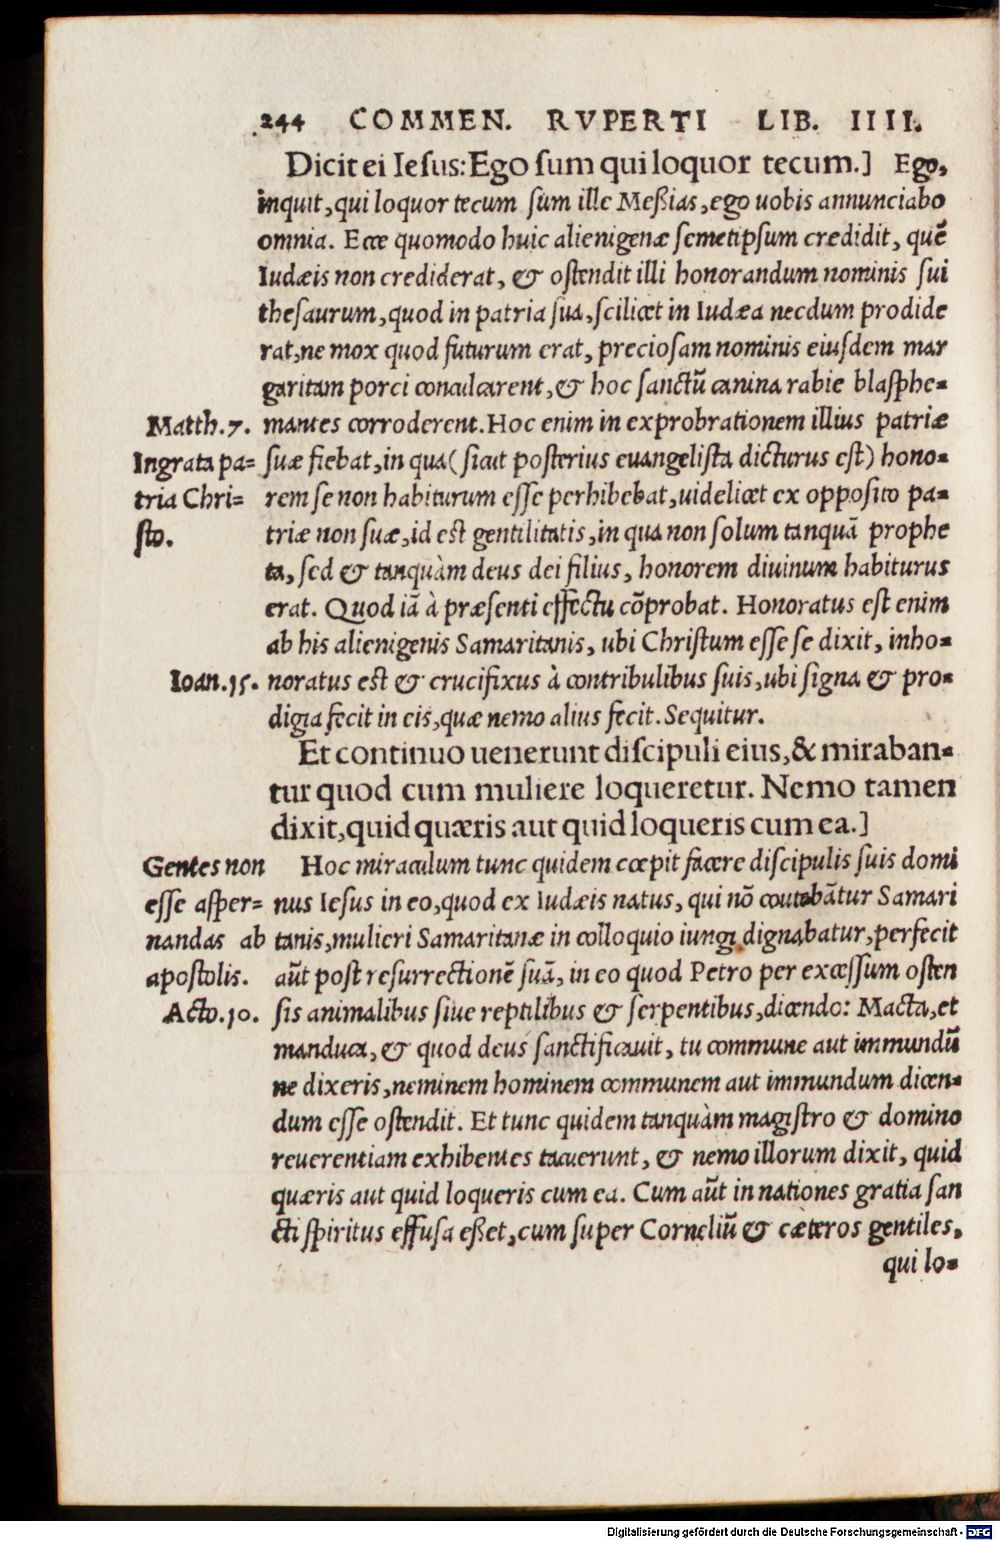 244 COMMEN. RVPERTI LIB. IIII.
Dicit ei Iesus: Ego sum qui loquor tecum.] Ego,
inquit, qui loquor tecum sum ille Meßias, ego uobis annunciabo
omnia. Ecce quomodo huic alienigenæ semetipsum credidit, quẽ
Iudæis non crediderat, & ostendit illi honorandum nominis sui
thesaurum, quod in patria sua, scilicet in Iudæa necdum prodide
rat, ne mox quod futurum erat, preciosam nominis eiusdem mar
garitam porci conculcarent, & hoc sanctũ canina rabie blasphe=
Matth.7. mantes corroderent. Hoc enim in exprobrationem illius patriæ
Ingrata pa= suæ fiebat, in qua (sicut posterius euangelista dicturus est) hono=
tria Chri= rem se non habiturum esse perhibebat, uidelicet ex opposito pa=
sto. triæ non suæ, id est gentilitatis, in qua non solum tanquã prophe
ta, sed & tanquàm deus dei filius, honorem diuinum habiturus
erat. Quod iã à præsenti effectu cõprobat. Honoratus est enim
ab his alienigenis Samaritanis, ubi Christum esse se dixit, inho=
Ioan.15. noratus est & crucifixus à contribulibus suis, ubi signa & pro=
digia fecit in eis, quæ nemo alius fecit. Sequitur.
Et continuo uenerunt discipuli eius, & miraban=
tur quod cum muliere loqueretur. Nemo tamen
dixit, quid quæris aut quid loqueris cum ea.]
Gentes non Hoc miraculum tunc quidem cœpit facere discipulis suis domi
esse asper= nus Iesus in eo, quod ex Iudæis natus, qui nõ coutebãtur Samari
nandas ab tanis, mulieri Samaritanæ in colloquio iungi dignabatur, perfecit
apostolis. aũt post resurrectionẽ suã, in eo quod Petro per excessum osten
Acto.10. sis animalibus siue reptilibus & serpentibus, dicendo: Macta, et
manduca, & quod deus sanctificauit, tu commune aut immundũ
ne dixeris, neminem hominem communem aut immundum dicen=
dum esse ostendit. Et tunc quidem tanquàm magistro & domino
reuerentiam exhibentes tacuerunt, & nemo illorum dixit, quid
quæris aut quid loqueris cum ea. Cum aũt in nationes gratia san
cti spiritus effusa eßet, cum super Corneliũ & cæteros gentiles,
qui lo=
Digitalisierung gefördert durch die Deutsche Forschungsgemeinschaft - DFG